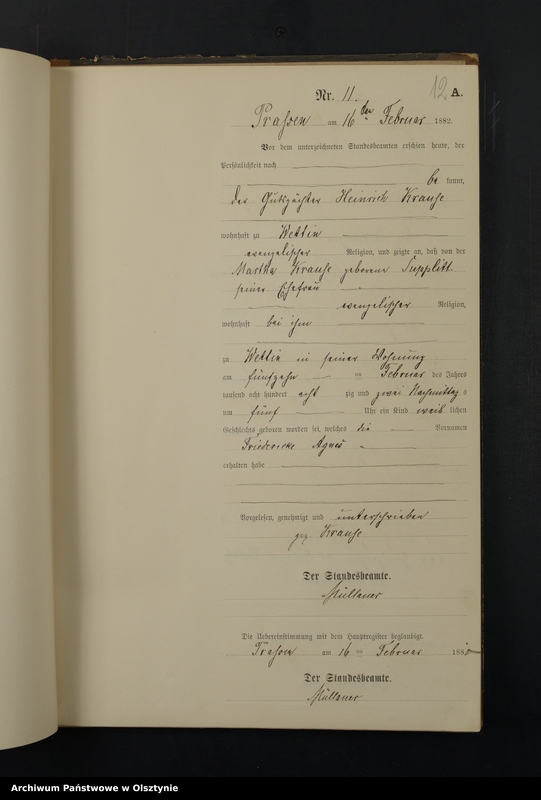 Nr. 11.
12 A.
am 16 ten Februar 1882.
Vor dem unterzeichneten Standesbeamten erschien heute, der
Persönlichkeit nach
be kannt,
der Gutspächter Heinrich Krause
wohnhaft zu Wettin
evangelischer Religion, und zeigte an, daß von der
Martha Krause geborene Supplitt
seiner Ehefrau
evangelischer Religion,
wohnhaft bei ihm
zu Wettin in seiner Wohnung
am fünfzehn ten Februar des Jahres
tausend acht hundert acht zig und zwei Nachmittag s
um fünf Uhr ein Kind weib lichen
Geschlechts geboren worden sei, welches die Vornamen
Friedericke Agnes
erhalten habe
Vorgelesen, genehmigt und unterschrieben
gez. Krause
Der Standesbeamte.
Die Uebereinstimmung mit dem Hauptregister beglaubigt.
am 16 ten Februar 188
Der Standesbeamte.
Archiwum Państwowe w Olsztynie